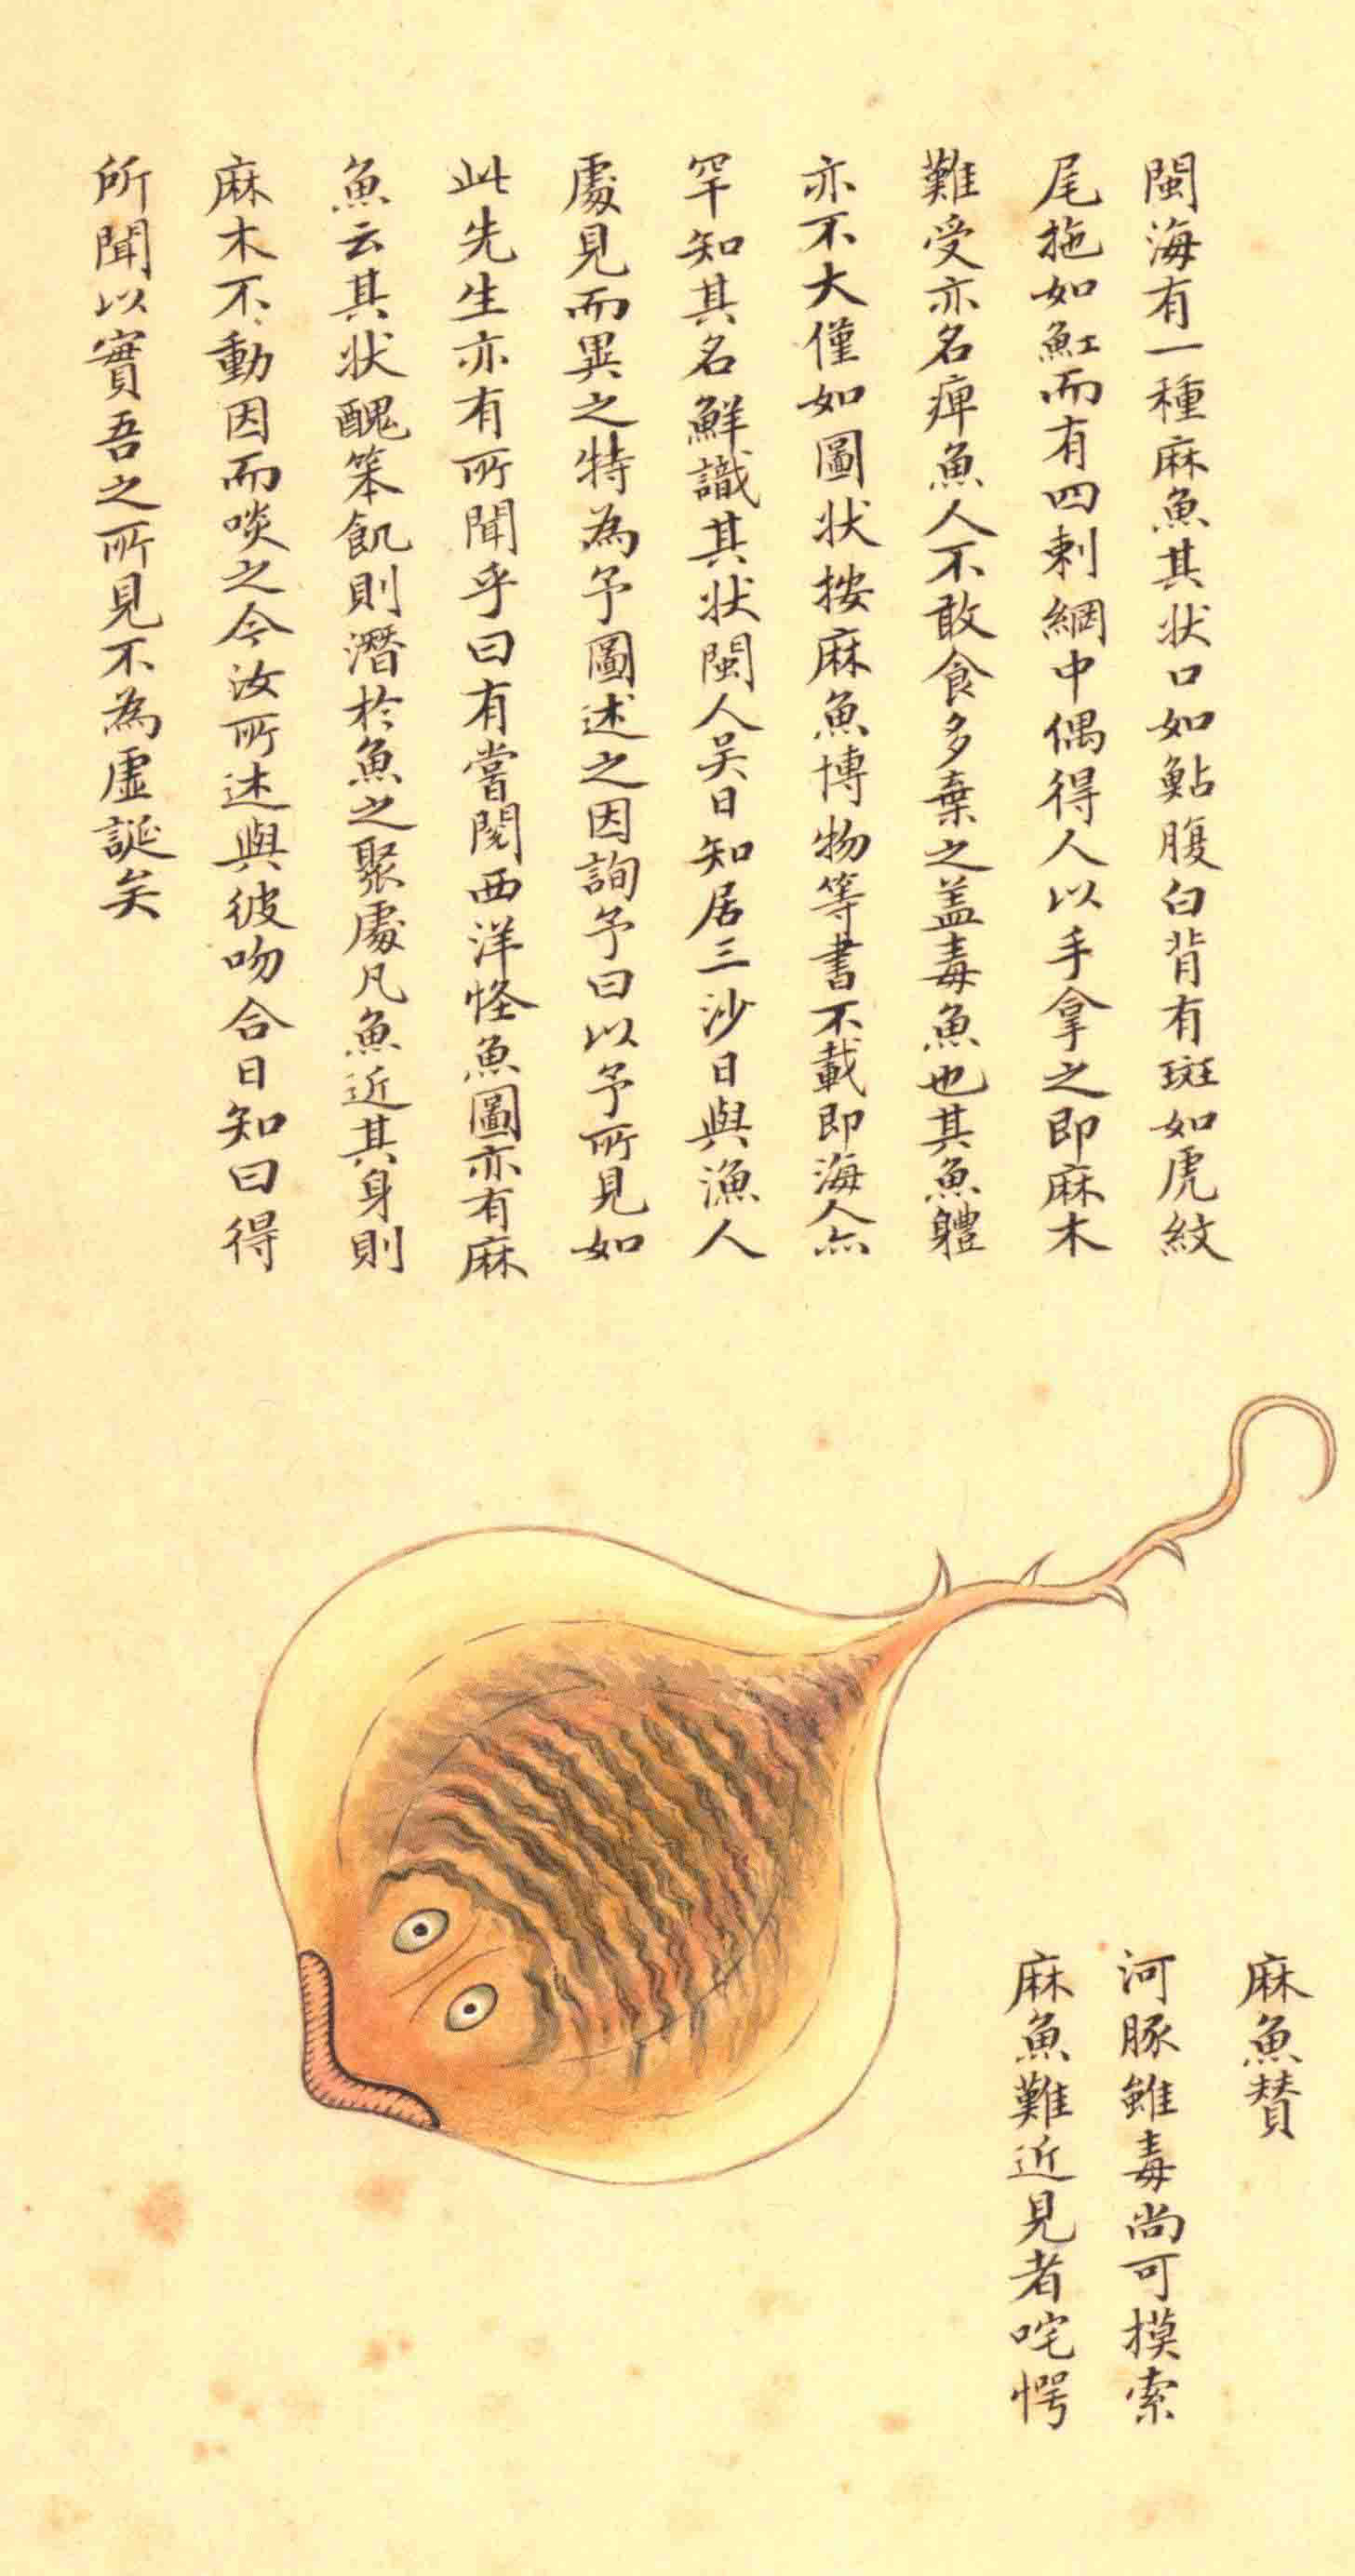 閩海有一種麻魚其状口如鮎腹白背有斑如虎紋
尾拖如魟而有四刺網中偶得人以手拿之即麻木
難受亦名痺魚人不敢食多棄之盖毒魚也其魚軆
亦不大僅如圖状按麻魚博物等書不載即海人亦
罕知其名鮮識其状閩人吴日知居三沙日與漁人
處見而異之特為予圖述之因詢予曰以予所見如
此先生亦有所聞乎曰有嘗閱西洋怪魚圖亦有麻
魚云其状醜笨飢則潛於魚之聚處凡魚近其身則
麻木不動因而啖之今汝所述與彼吻合日知曰得
所聞以實吾之所見不為虛誕矣
麻魚賛
河豚雖毒尚可摸索
麻魚難近見者咤愕